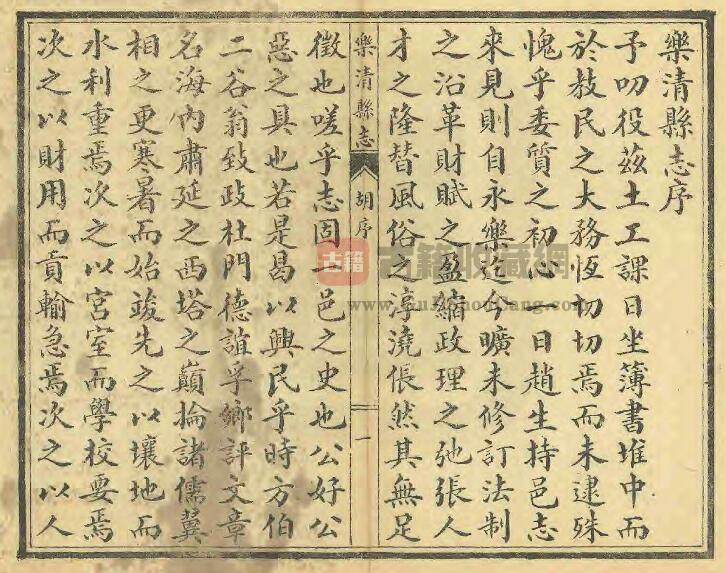 樂清縣志序
予叨役茲土工課日坐簿書堆中而
於教民之大務恆切切焉而未逮殊
愧乎委質之初心一日趙生持邑志
來見則自永樂迄今曠未修訂法制
之沿革財賦之盈縮政理之弛張人
才之隆替風俗之淳澆倀然其無足
樂清縣志 胡序 一
徵也嗟乎志固一邑之史也公好公
惡之具也若是曷以興民乎時方伯
二谷翁致政杜門德誼孚鄉評文章
名海內肅延之西塔之巔掄諸儒翼
相之更寒暑而始竣先之以壤地而
水利重焉次之以宮室而學校要焉
次之以財用而貢輸急焉次之以人
古籍
古籍收藏網